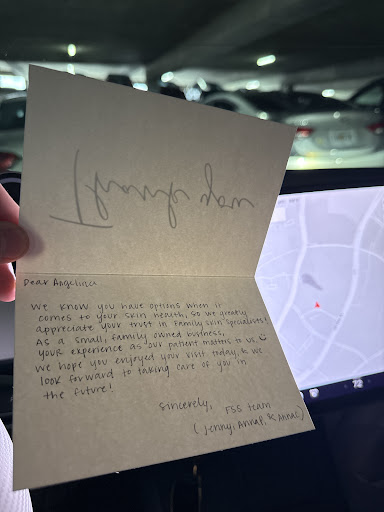 Thank you
Dear Angelina,
We know you have options when it
comes to your skin health, so we greatly
appreciate your trust in Family Skin Specialists!
As a small, family owned business,
your experience as our patient matters to us. ☺
We hope you enjoyed your visit today, & we
look forward to taking care of you in
the future!
Sincerely,
FSS team
(Jenny, Anna P. & Anna C)
72